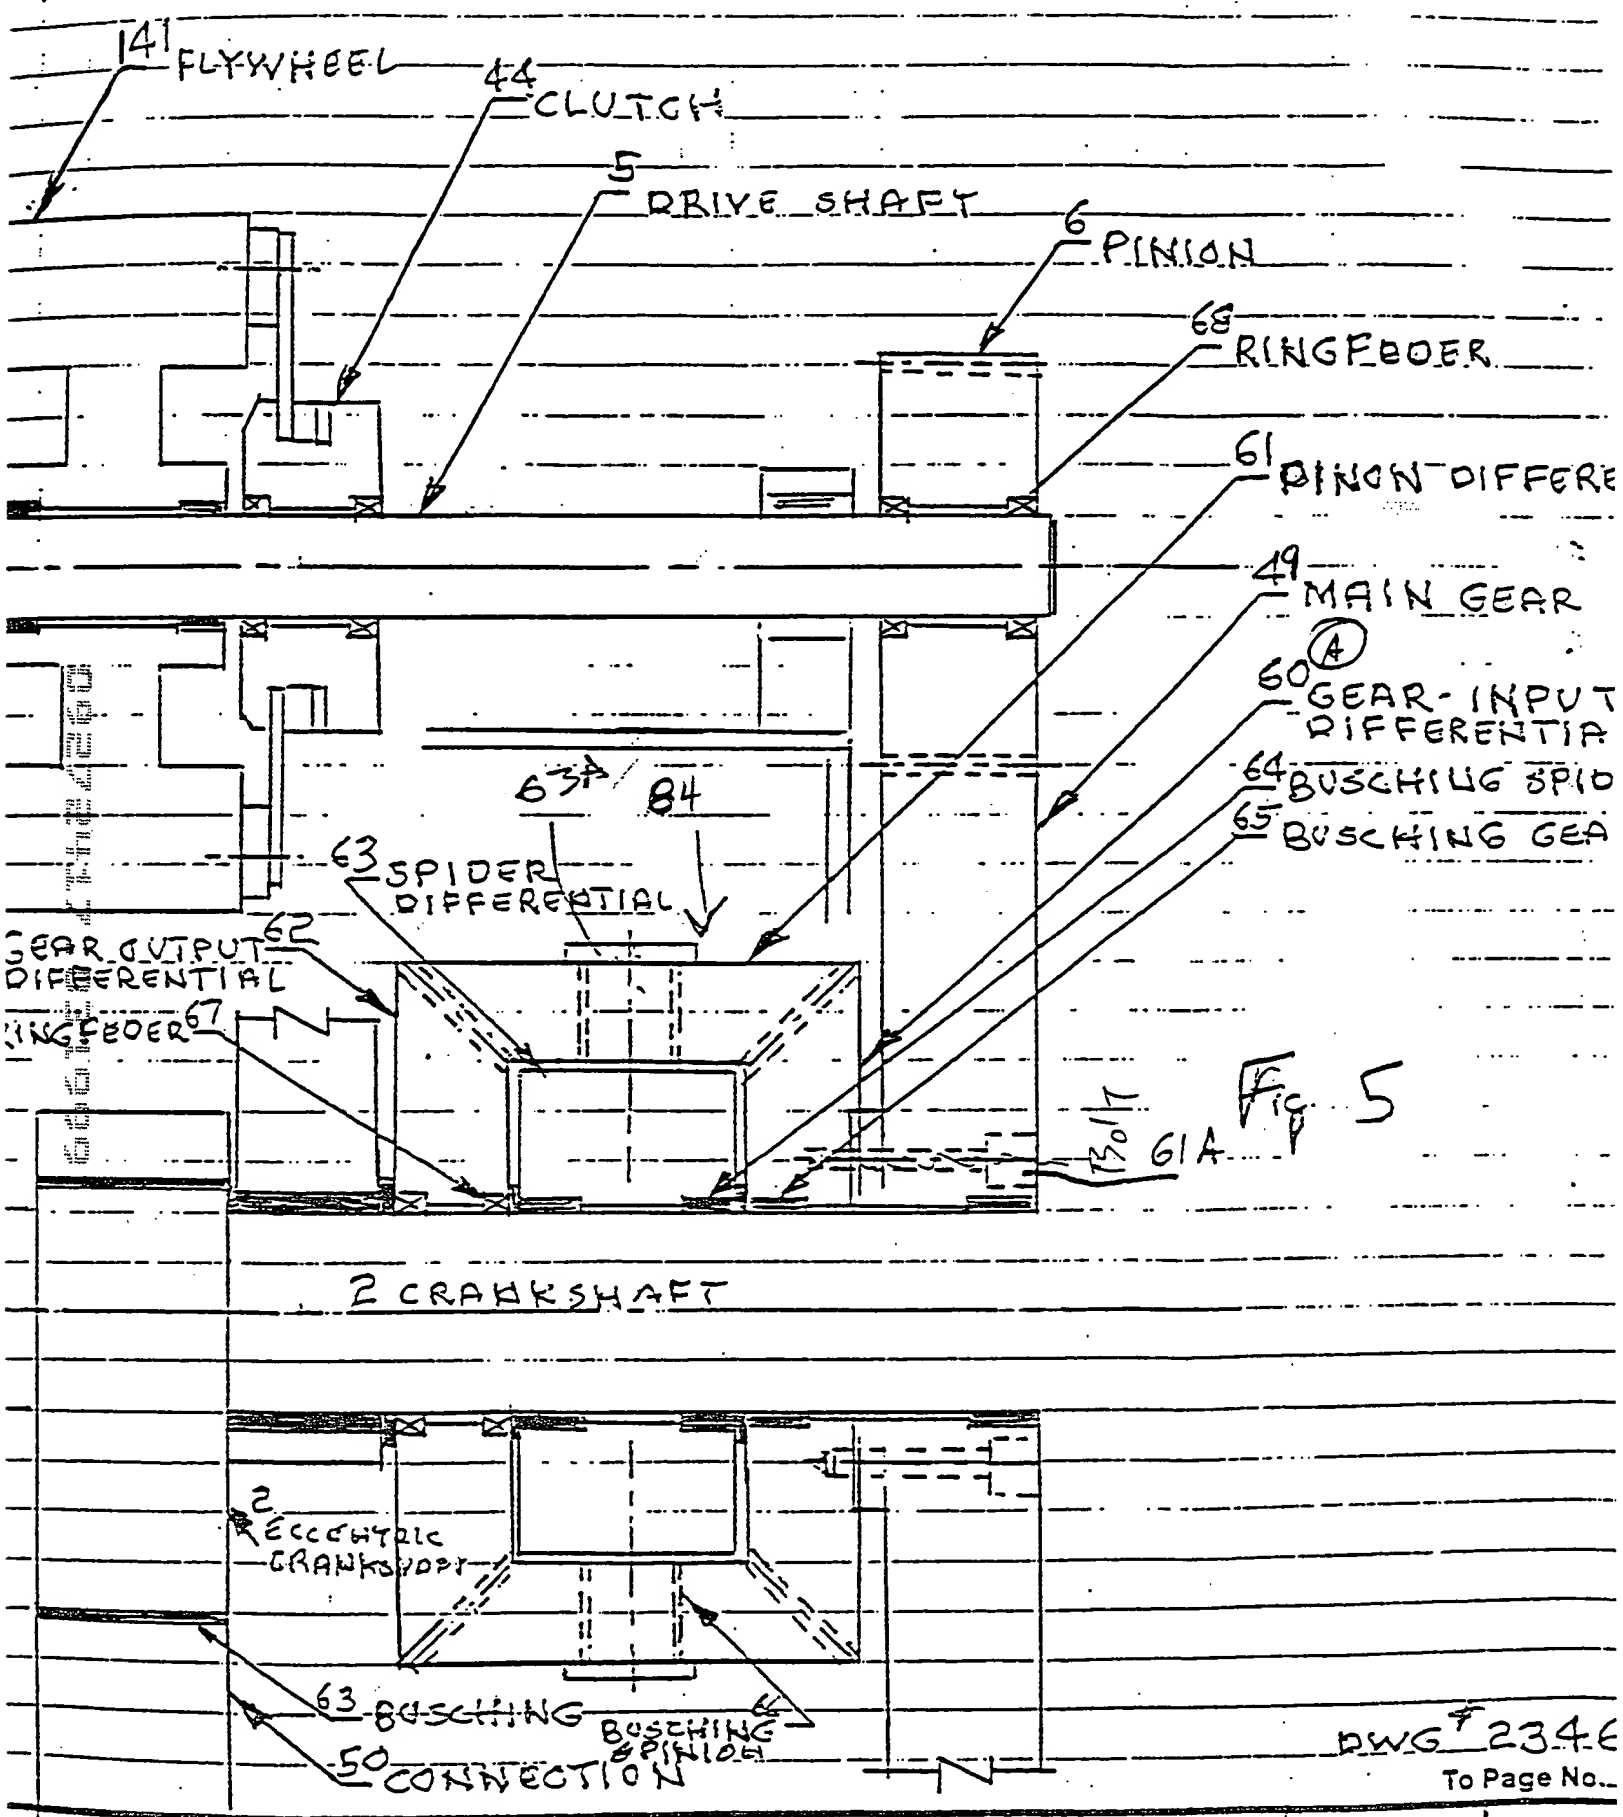 141 FLYWHEEL
44 CLUTCH
5 DRIVE SHAFT
6 PINION
68 RINGFEDER
61 PINON DIFFERE
49 MAIN GEAR
A
60 GEAR-INPUT
DIFFERENTIA
64 BUSCHING SPID
65 BUSCHING GEA
63A 84
63 SPIDER
DIFFERENTIAL
62
GEAR OUTPUT
DIFFERENTIAL
RINGFEDER 67
Fig 5
Bolt
61A
2 CRANKSHAFT
2
ECCENTRIC
CRANKSHAFT
63 BUSCHING
66
BUSCHING
PINION
50 CONNECTION
DWG # 2346
To Page No.